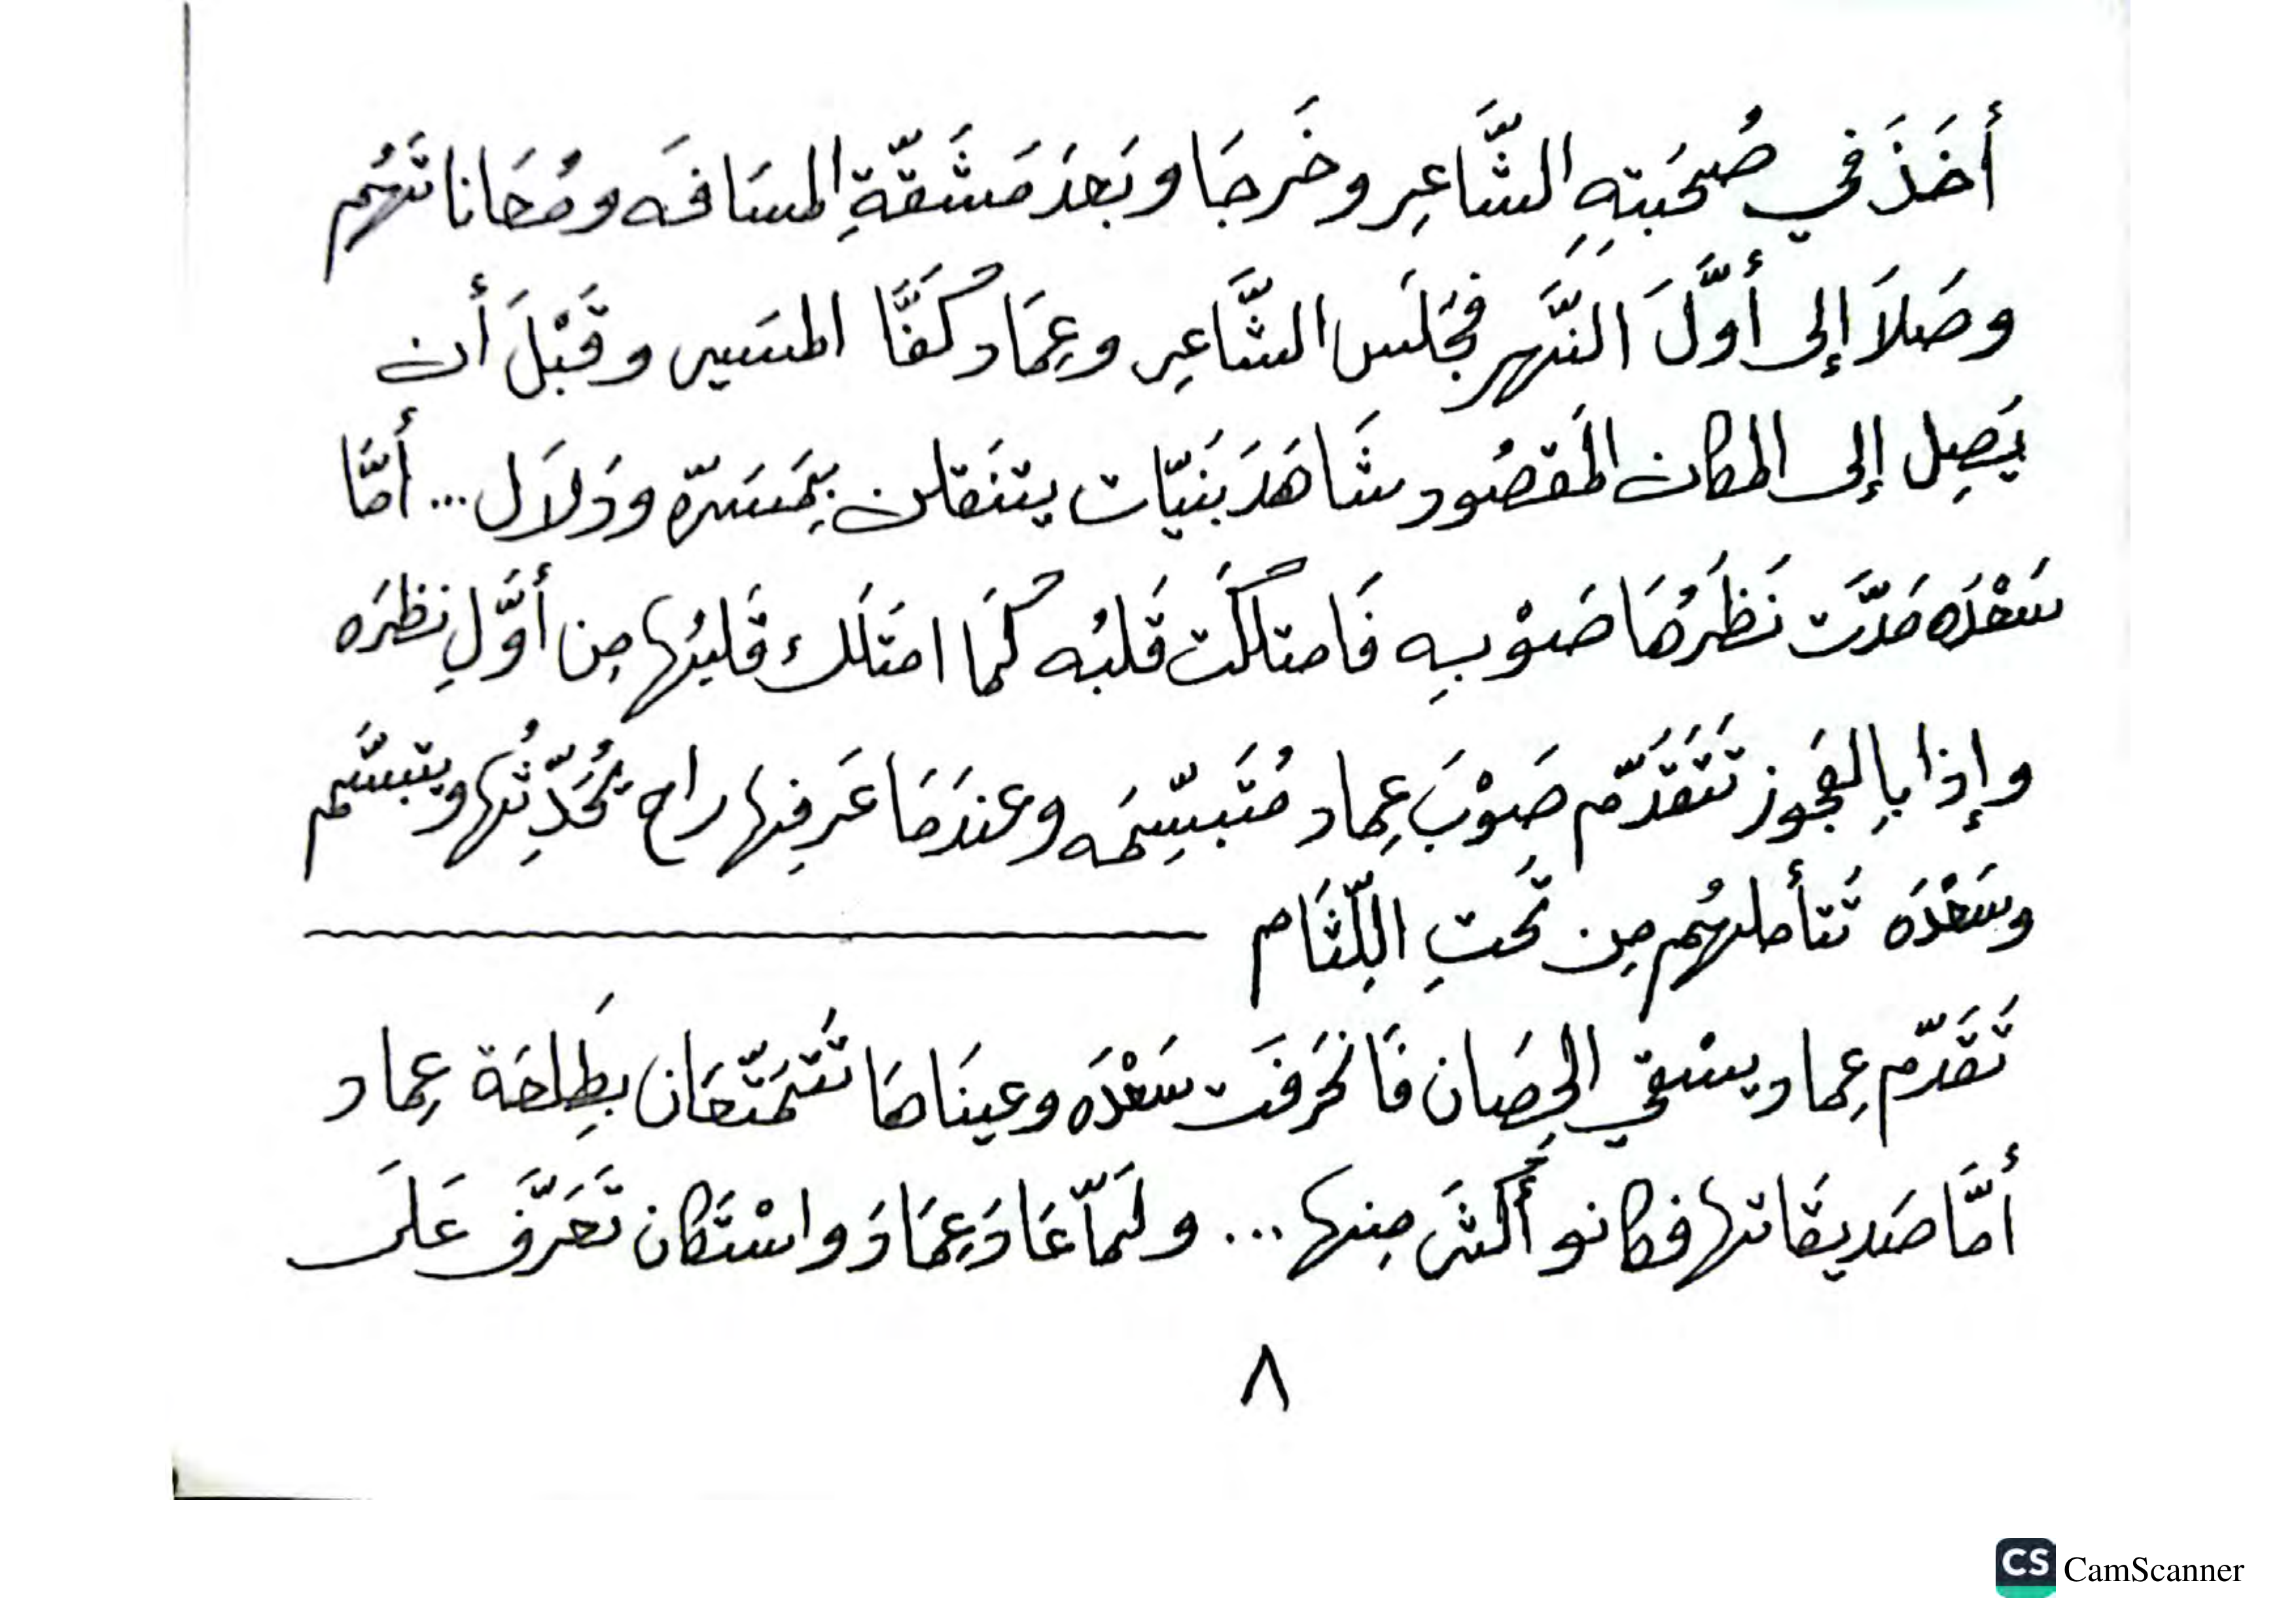 أَخَذَ في صُحبَتِهِ الشَّاعِر وخَرجَا وبَعدَ مَشَقَّةِ المسَافَه ومُعَاناتَهُم
وصَلاَ إلى أوَّلَ النَّهر فجَلَس الشَّاعِر وعِمَاد كَفَّا المسَير وقَبْلَ أن
يَصِل إلى المكان المَقصُود شَاهَدَ بَنيّات يتنَقلن بِمَسَرّه ودَلاَل... أمَّا
سَعْدَه مَدَّت نَظَرُهَا صَوْبِهِ فَامتلكَت قَلبُه كَمَا امتَلَك قَلبُها مِن أوَّلِ نظرَه
وإذا بِالعَجوز تَتَقَدَّم صَوْبَ عِماد مُتَبسِّمَه وعندَمَا عَرِفها راح يُحَدِّثُها ويتبسَّم
وسَعْدَه تَتأملهُم مِن تَحتِ اللِّثَام
تَقَدَّم عِماد يسْقي الحِصَان فَانحَرفَت سَعْدَه وعينَاهَا تَتَمَتَّعَان بِطَلعَة عِماد
أمَّا صَديقَاتها فكانو أَكثَر مِنها... ولَمَّا عَادَ عِمَادَ واسْتَكان تَعَرَّف عَلَى
٨
CS CamScanner